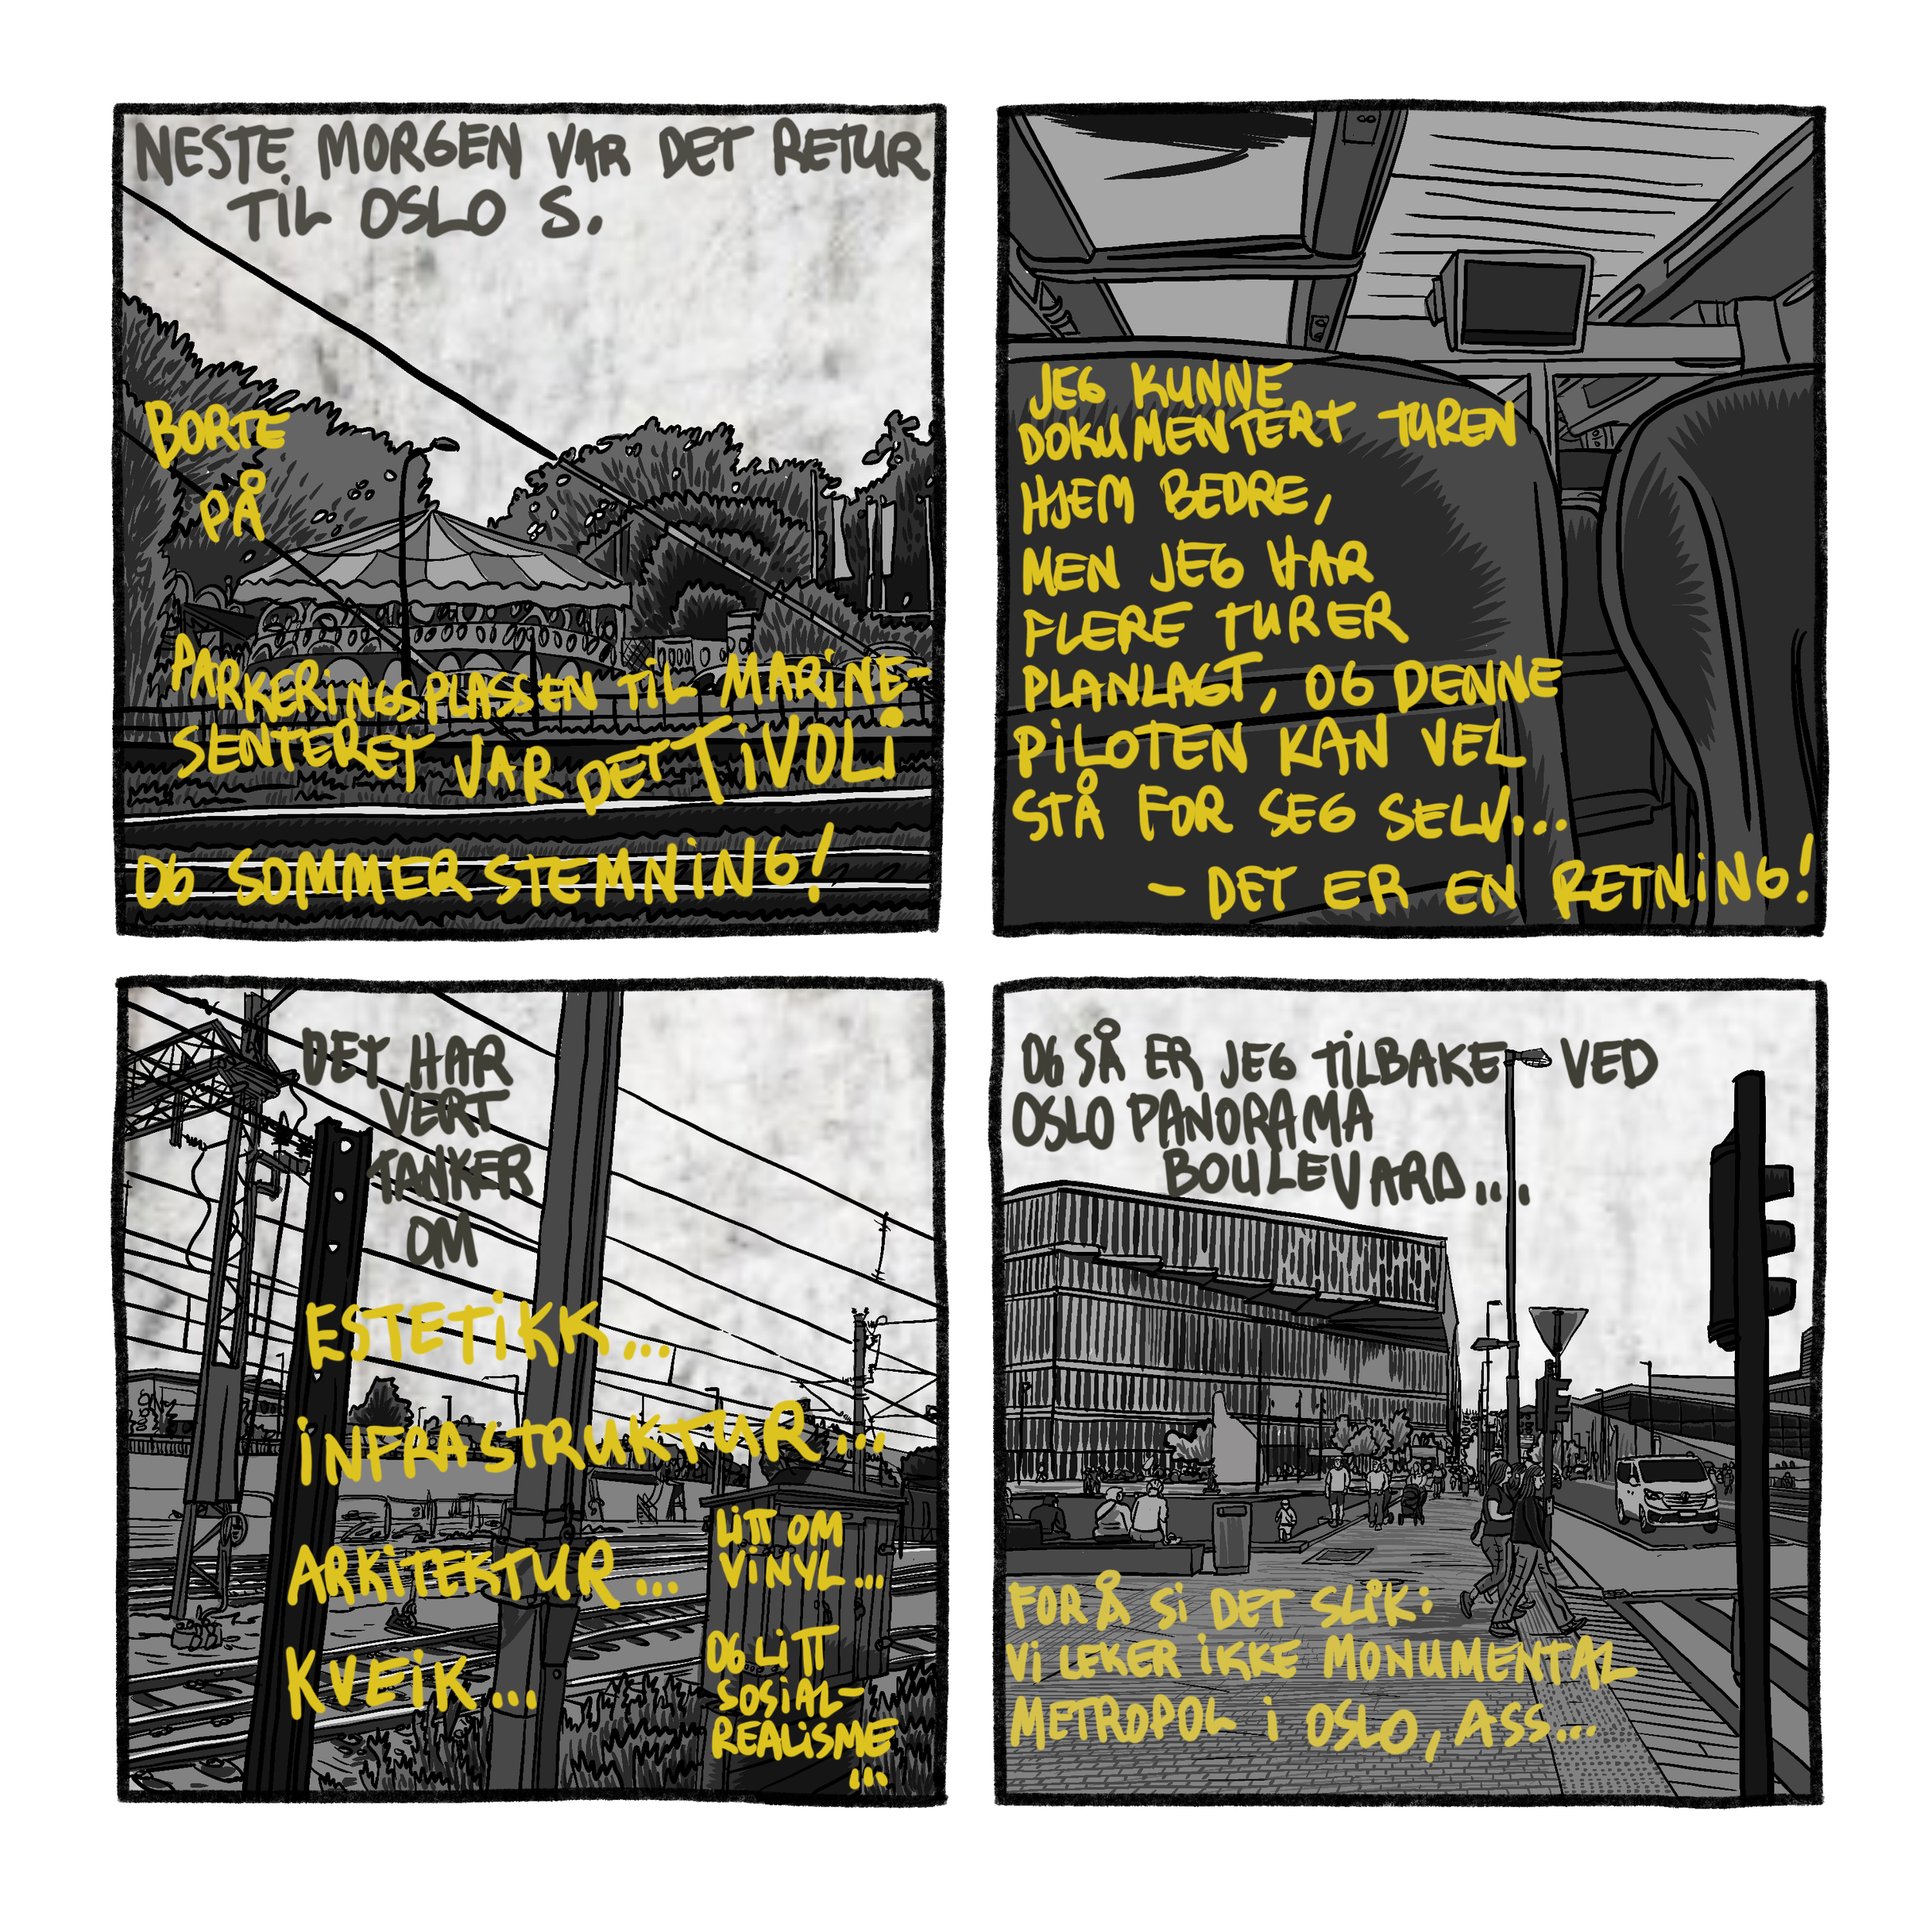 NESTE MORGEN VAR DET RETUR
TIL OSLO S.
BORTE
PÅ
PARKERINGSPLASSEN TIL MARINE-
SENTERET VAR DET TIVOLI
OG SOMMERSTEMNING!
JEG KUNNE
DOKUMENTERT TUREN
HJEM BEDRE,
MEN JEG HAR
FLERE TURER
PLANLAGT, OG DENNE
PILOTEN KAN VEL
STÅ FOR SEG SELV...
- DET ER EN RETNING!
DET HAR
VERT
TANKER
OM
ESTETIKK...
INFRASTRUKTUR...
ARKITEKTUR...
KVEIK...
LITT OM
VINYL...
OG LITT
SOSIAL-
REALISME
...
OG SÅ ER JEG TILBAKE VED
OSLO PANORAMA
BOULEVARD...
FOR Å SI DET SLIK:
VI LEKER IKKE MONUMENTAL
METROPOL I OSLO, ASS...